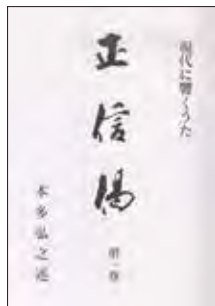 現代に響くうた
正信偈
第一巻
本多弘之述